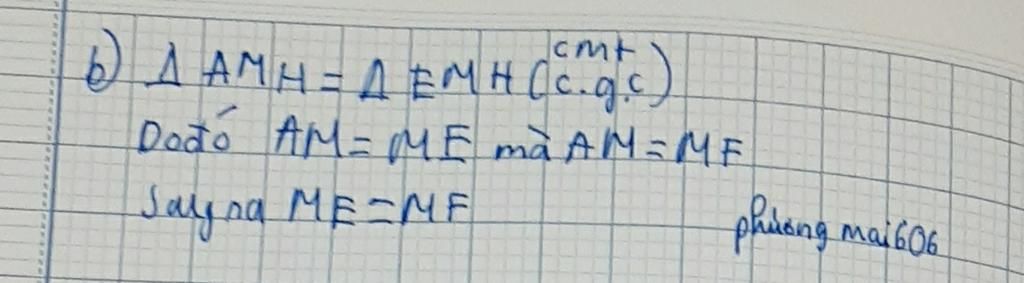 b) Δ AMH = Δ EMH (cmt c.g.c)
Do đó AM = ME mà AM = MF
Suy ra ME = MF
phương mai606